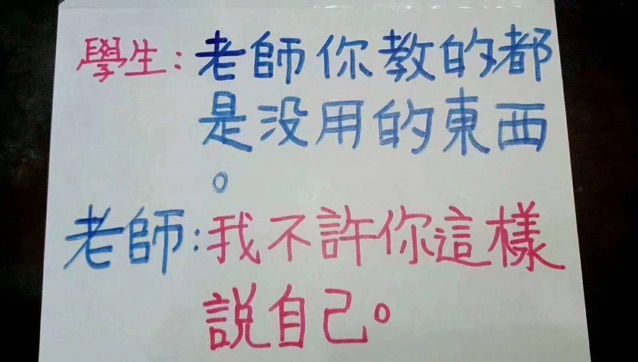 學生：老師你教的都
是没用的東西
。
老師：我不許你這樣
説自己。